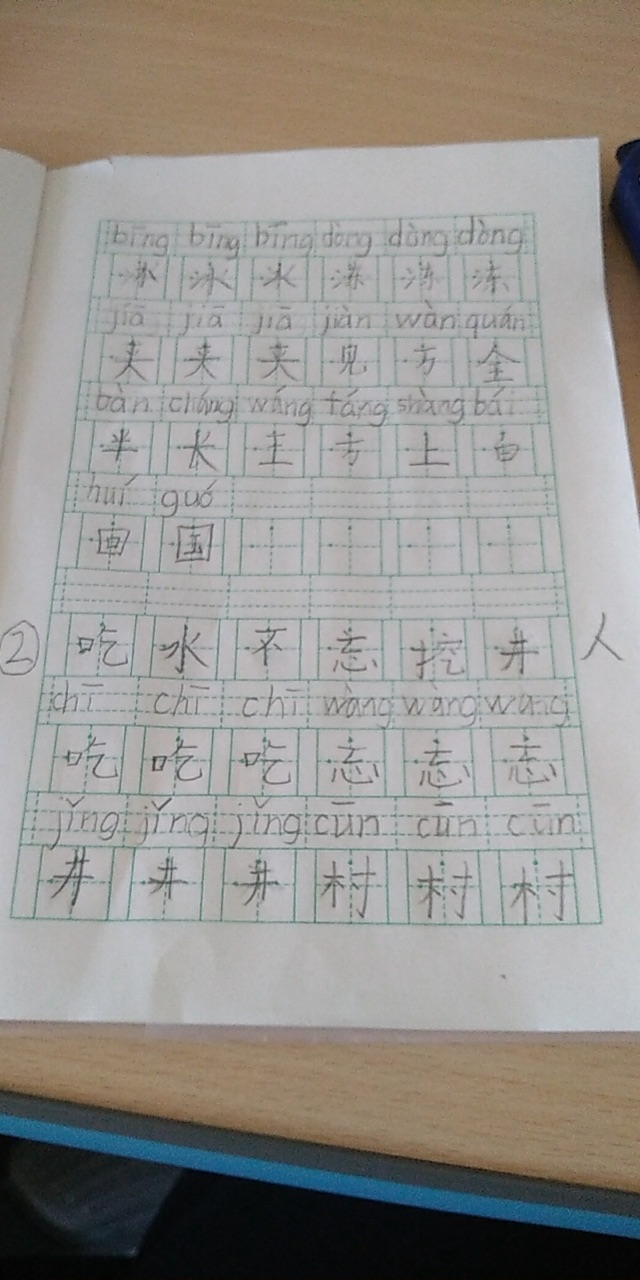 bīng bīng bīng dòng dòng dòng
冰 冰 冰 冻 冻 冻
jiā jiā jiā jiàn wàn quán
夹 夹 夹 见 方 全
bàn cháng wáng fáng shàng bái
半 长 主 方 上 白
huí guó
画 国
② 吃 水 不 忘 挖 井 人
chī chī chī wàng wàng wang
吃 吃 吃 忘 忘 忘
jǐng jǐng jǐng cūn cūn cūn
井 井 井 村 村 村